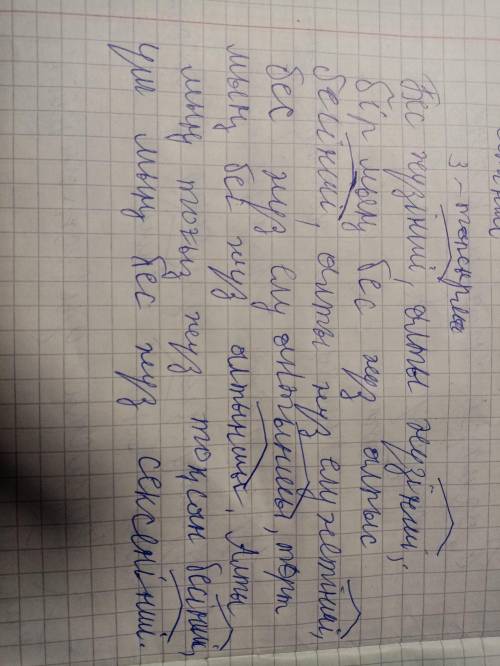 3-тапсырма
Бес жүзінші, алты жүзінші,
бір мың бес жүз алпыс
бесінші, алты жүз елу жетінші,
бес жүз елу алтыншы, төрт
мың бес жүз алтыншы, Алты
мың тоғыз жүз тоқсан бесінші,
үш мың бес жүз сексенінші.